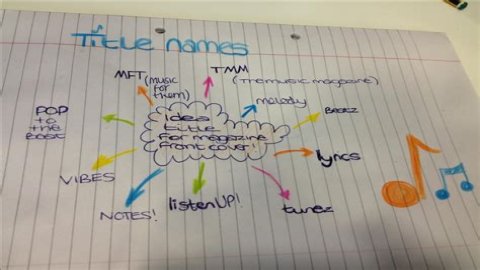 Title names
MFT (music
for
them)
TMM
(The music magazine)
melody
Beatz
POP
to
the
Beat
Idea
title
for magazine
front cover!
lyrics
VIBES
NOTES!
listenUP!
tunez